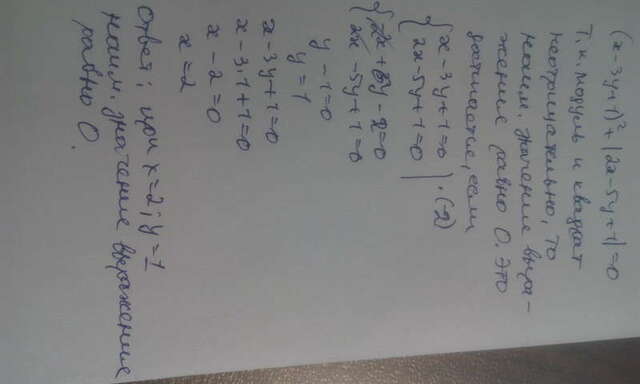 (x-3y+1)² + |2x-5y+1|=0
Т.к. модуль и квадрат
неотрицательно, то
наим. значение выра-
жение равно 0. Это
достигается, если
{ x-3y+1=0 | ·(-2)
{ 2x-5y+1=0
{ -2x+6y-2=0
{ 2x-5y+1=0
y-1=0
y=1
x-3y+1=0
x-3·1+1=0
x-2=0
x=2
Ответ: при x=2; y=1
наим. значение выражение
равно 0.